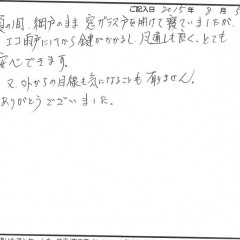 ご記入日 2015年 8月 5
夏の間、網戸のまま窓ガラス戸を開けて寝ていましたが、
エコ雨戸にしてから鍵がかかるし、風通しも良く、とても
安心できます。
又、外からの目線も気になることも有りません。
ありがとうございました。